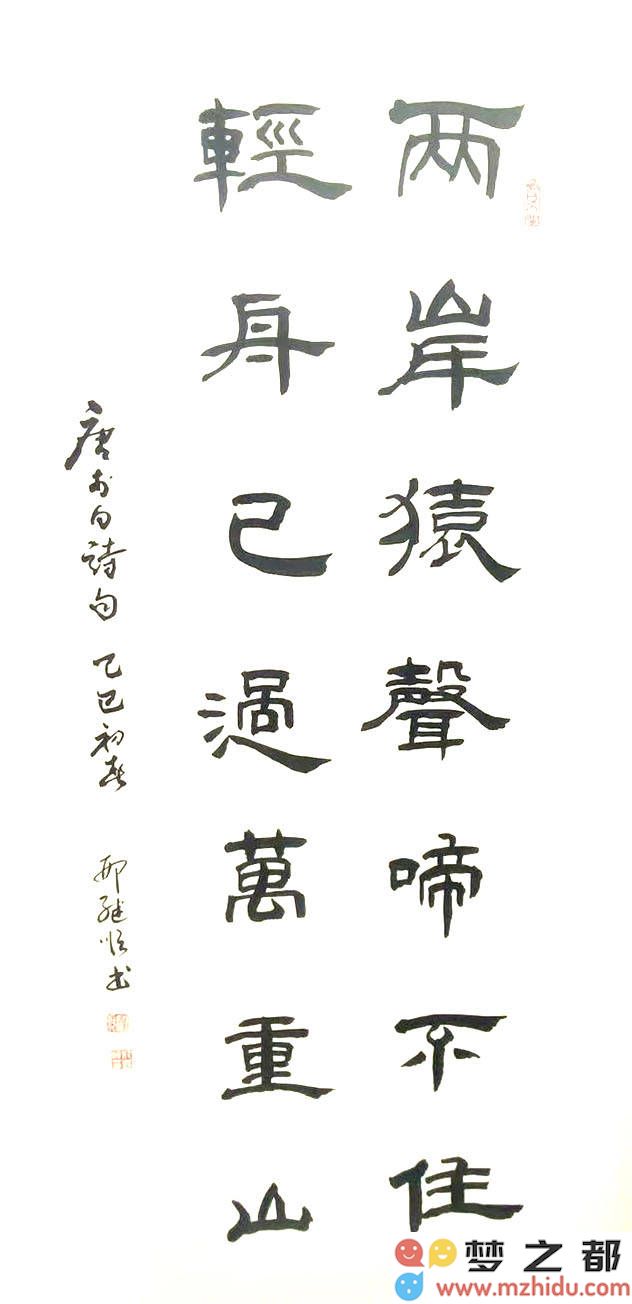 两岸猿聲啼不住
輕舟已過萬重山
唐李白詩句 乙巳初春 邢継順书
梦之都
www.mzhidu.com